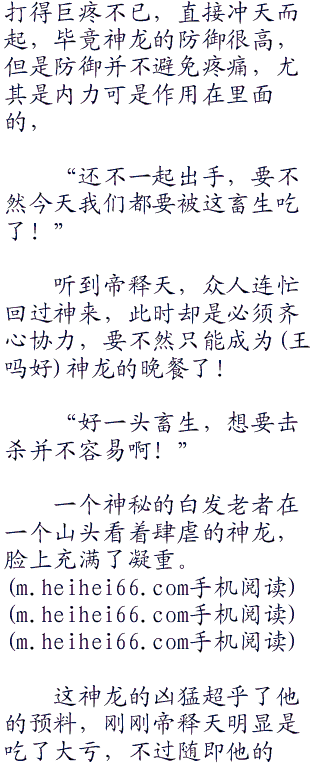 打得巨疼不已，直接冲天而
起，毕竟神龙的防御很高，
但是防御并不避免疼痛，尤
其是内力可是作用在里面
的，
“还不一起出手，要不
然今天我们都要被这畜生吃
了！”
听到帝释天，众人连忙
回过神来，此时却是必须齐
心协力，要不然只能成为(王
吗好)神龙的晚餐了！
“好一头畜生，想要击
杀并不容易啊！”
一个神秘的白发老者在
一个山头看着肆虐的神龙，
脸上充满了凝重。
(m.heihei66.com手机阅读)
(m.heihei66.com手机阅读)
(m.heihei66.com手机阅读)
这神龙的凶猛超乎了他
的预料，刚刚帝释天明显是
吃了大亏，不过随即他的